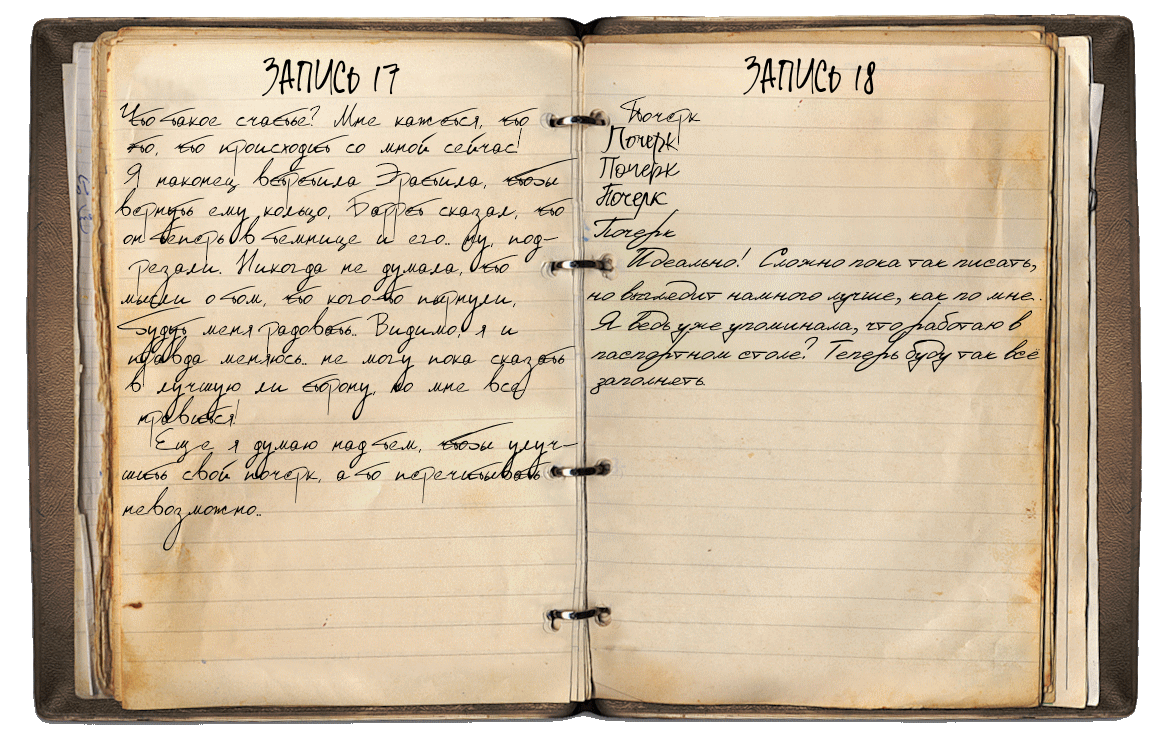 ЗАПИСЬ 17
Что такое счастье? Мне кажется, что
то, что происходит со мной сейчас!
Я наконец встретила Эрастила, чтобы
вернуть ему кольцо, Баррет сказал, что
он теперь в темнице и его.. ну, под-
резали. Никогда не думала, что
мысли о том, что кого-то пырнули,
будут меня радовать.. Видимо, я и
правда меняюсь.. не могу пока сказать
в лучшую ли сторону, но мне всё
нравится!
Еще я думаю над тем, чтобы улуч-
шить свой почерк, а то перечитывать
невозможно..
ЗАПИСЬ 18
Почерк
Почерк
Почерк
Почерк
Почерк
Идеально! Сложно пока так писать,
но выглядит намного лучше, как по мне..
Я ведь уже упоминала, что работаю в
паспортном столе? Теперь буду так всё
заполнять.